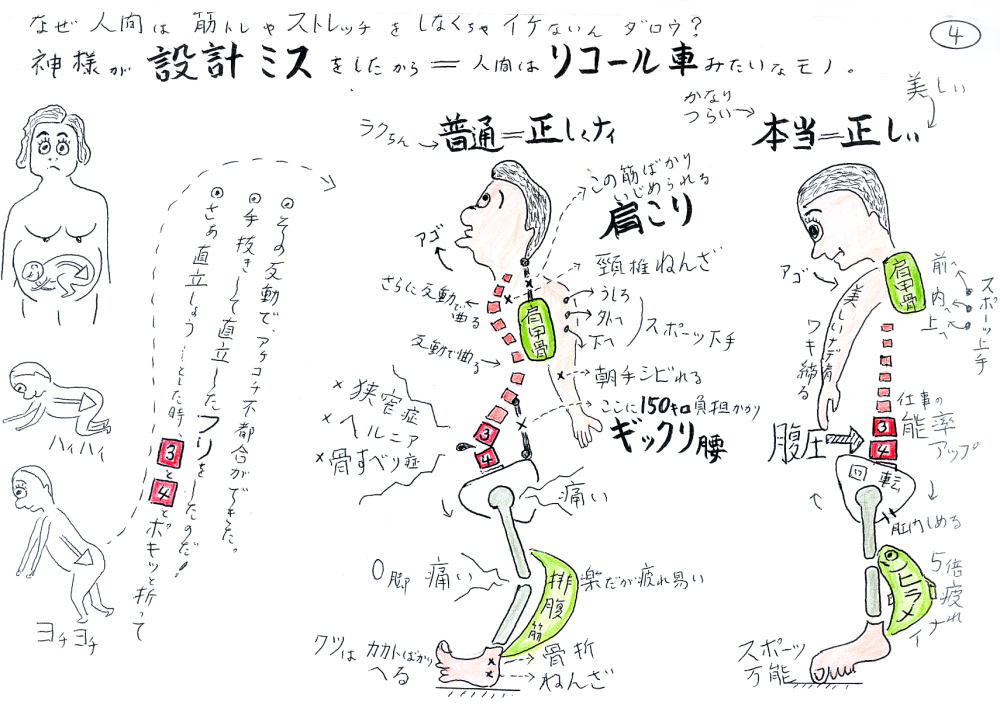 なぜ人間は筋トレやストレッチをしなくちゃイケないんダロウ?
④
神様が設計ミスをしたから=人間はリコール車みたいなモノ。
ハイハイ
ヨチヨチ
⦿さぁ直立しよう……とした時、3と4とポキッと折って
⦿手抜きして直立したフリをしたのだ!
⦿その反動で、アチコチ不都合がでキた。
ラクちん→普通=正しくナイ
この筋ばかりいじめられる
肩こり
アゴ
頸椎ねんざ
さらに反動で曲る
肩甲骨
うしろ
外へ
下へ
スポーツ下手
反動で曲る
×狭窄症
×ヘルニア
×骨すべり症
朝手シビれる
ここに150キロ負担かかり
ギックリ腰
3
4
痛い
O脚 痛い
排腹筋
楽だが疲れ易い
クツはカカトばかりへる
骨折
ねんざ
美しい
かなりつらい→本当=正しい
アゴ
肩甲骨
前へ
内へ
上へ
スポーツ上手
美しいナデ肩
ワキ締る
仕事の能率アップ
腹圧
3
4
回転
肛門しめる
ヒラメ
5倍疲れナイ
スポーツ万能